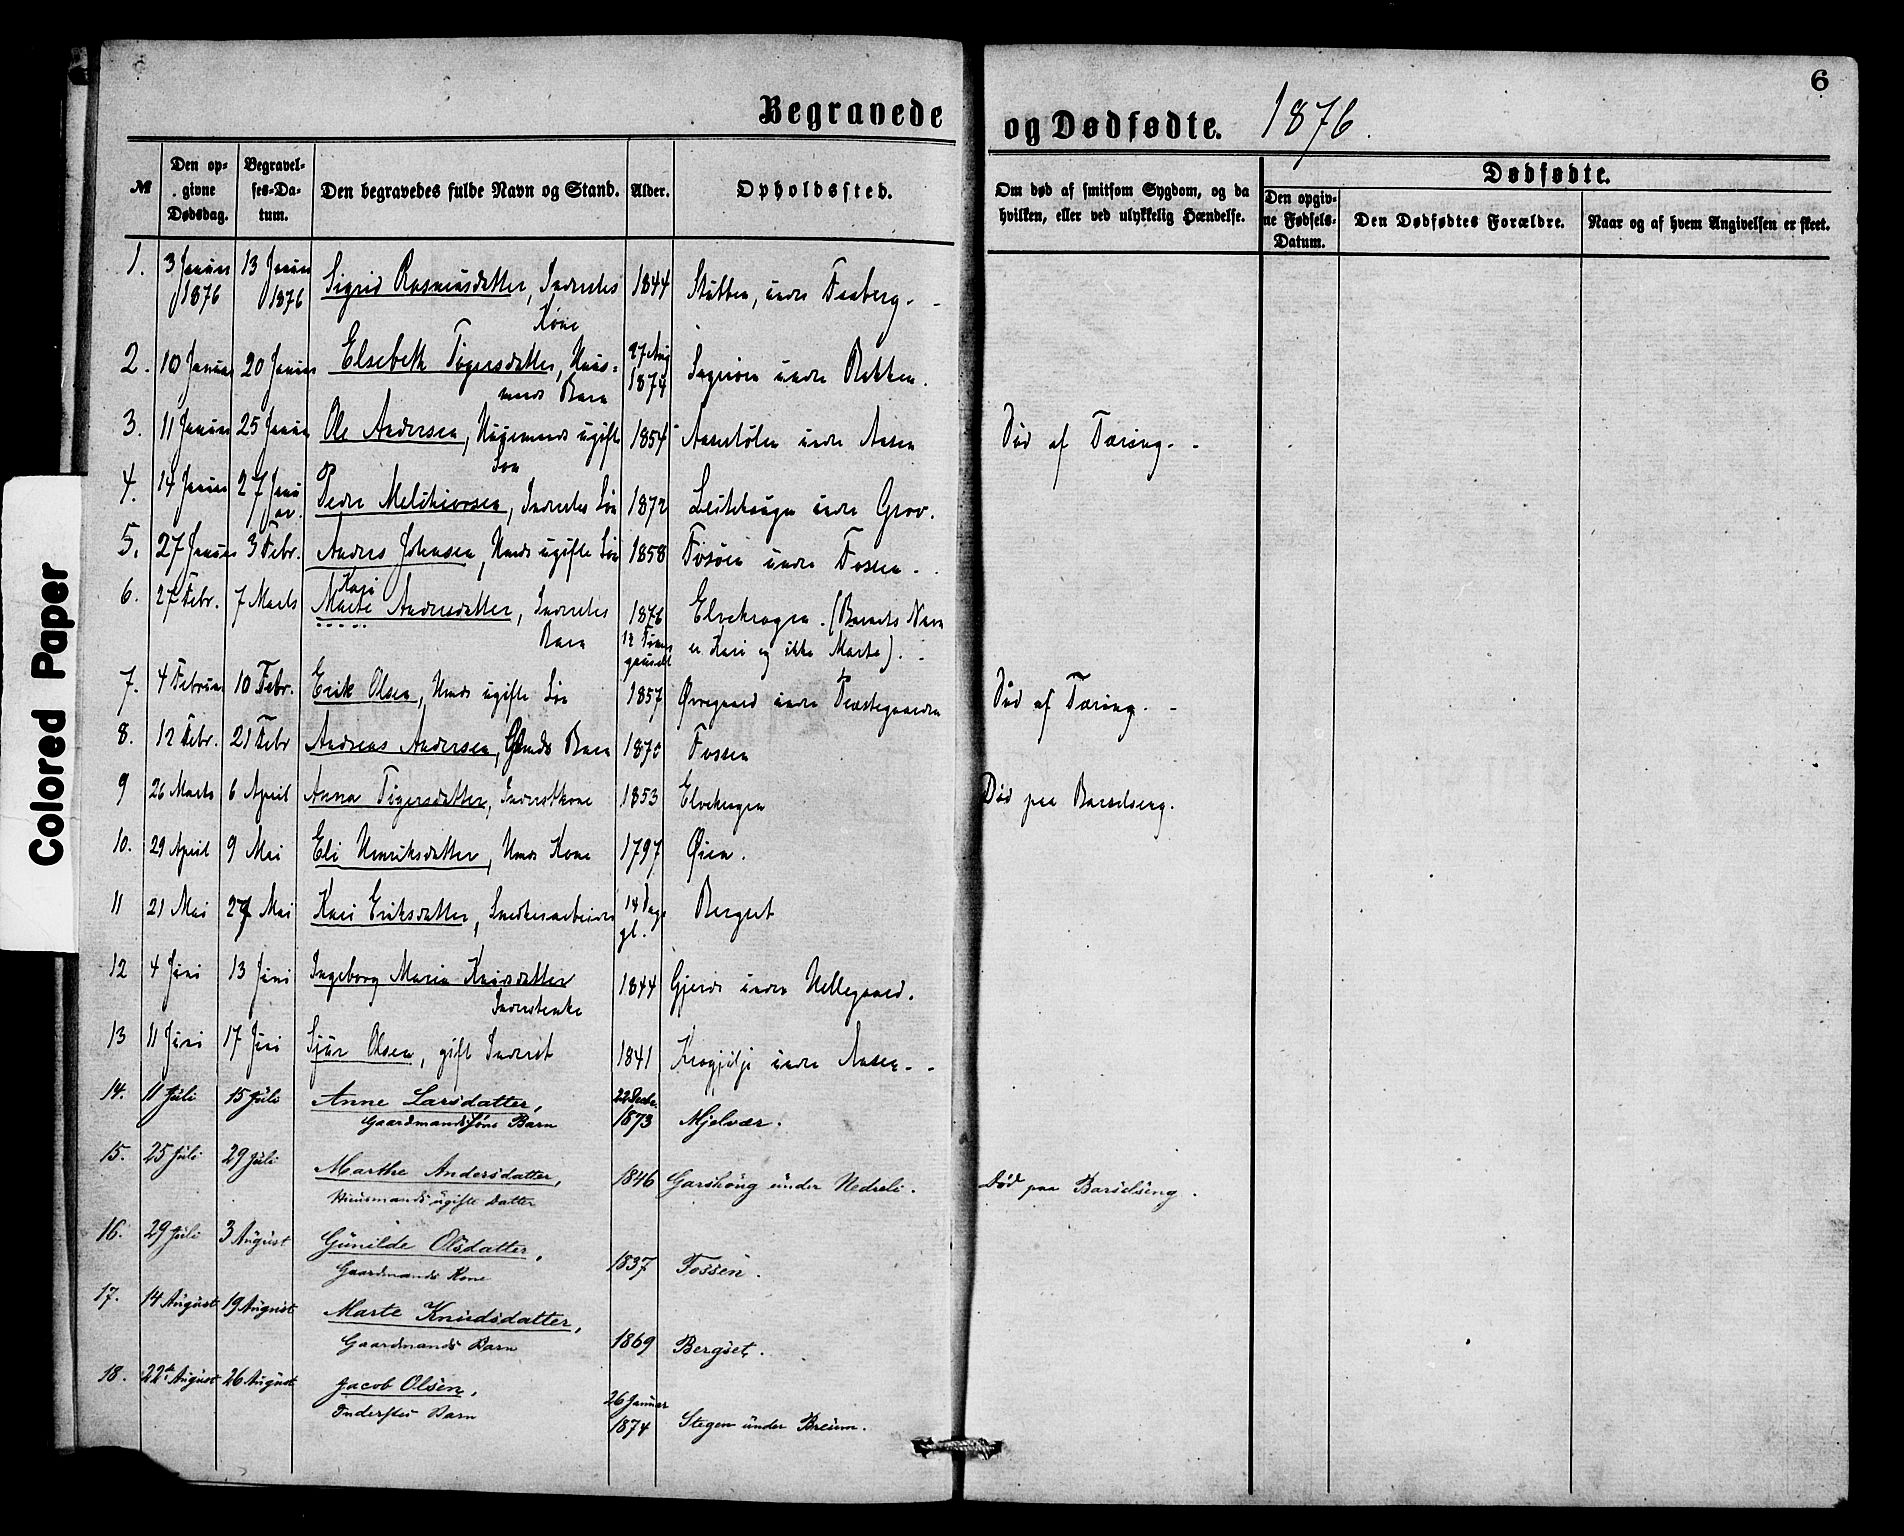 6
Begravede og Dødfødte. 1876.
№ Den opgivne Dødsdag. Begravelses-Datum. Den begravedes fulde Navn og Stand. Alder. Opholdssted. Om død af smitsom Sygdom, og da hvilken, eller ved ulykkelig Hændelse. Dødfødte. Den opgivne Fødsels-Datum. Den Dødfødtes Forældre. Naar og af hvem Angivelsen er skeet.
1. 3 Januar 1876 13 Januar 1876 Sigrid Rasmusdatter, Inderstes Kone 1844 Stubben, under
2. 10 Januar 20 Januar Elsebeth Tøgersdatter, Huusmands Barn 27 Aug 1874 under
3. 11 Januar 25 Januar Ole Andersen, ugifte Søn 1854 under Aasen Død af Tæring.
4. 14 Januar 27 Januar. Peder Melchiorsen, Inderstes Søn 1872 under Grov.
5. 27 Januar 3 Febr. Anders Johnsen, Hmds ugifte Søn 1858 Fosøen under Fossen.
6. 27 Febr. 7 Marts Kari
Marte Andersdatter, Inderstes Barn 1876 12 Timer gammel Elvekragen. (Barnets Navn er Kari og ikke Marte).
7. 4 Februar 10 Febr. Erik Olsen, Hmds ugifte Søn 1857 Øvregaard under Præstegaarden Død af Tæring.
8. 12 Febr. 21 Febr Andreas Andersen, Gmds Barn 1870 Fossen
9 26 Marts 6 April Anna Tøgersdatter, Inderstkone 1853 Elvekragen Død paa Barselseng.
10. 29 April 9 Mai Eli Henriksdatter, Hmds Kone 1797 Øien.
11 21 Mai 27 Mai Kari Eriksdatter, Snedkerarbeider 14 Dage gl. Bergset
12 4 Juni 13 Juni Ingeborg Maria Knudsdatter Inderstenke 1844 Gjerde under Hellegaard.
13 11 Juni 17 Juni Sjur Olsen, gift Inderst 1841 under Aasen
14. 11 Juli 15 Juli Anne Larsdatter, Gaardmandsføns Barn 22 Decbr. 1873 Mjelvær.
15. 25 Juli 29 Juli Marthe Andersdatter, Huusmands ugifte Datter 1846 Garshoug under Nedreli. Død paa Barselseng.
16. 29 Juli 3 August Gunilde Olsdatter, Gaardmands Kone 1837 Fossen.
17. 14 August 19 August Marte Knudsdatter, Gaardmands Barn 1869 Bergset.
18. 22de August 26 August Jacob Olsen, Inderstes Barn 26 Januar 1874 Stegen under Breum.
Colored Paper